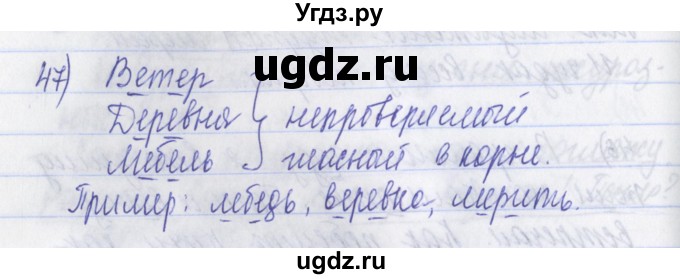 Угдз.ру
ugdz.ru
47) Ветер
Деревня } непроверяемый
Мебель гласный в корне.
Пример: лебедь, веревка, мерить.
ugdz.ru
ugdz.ru